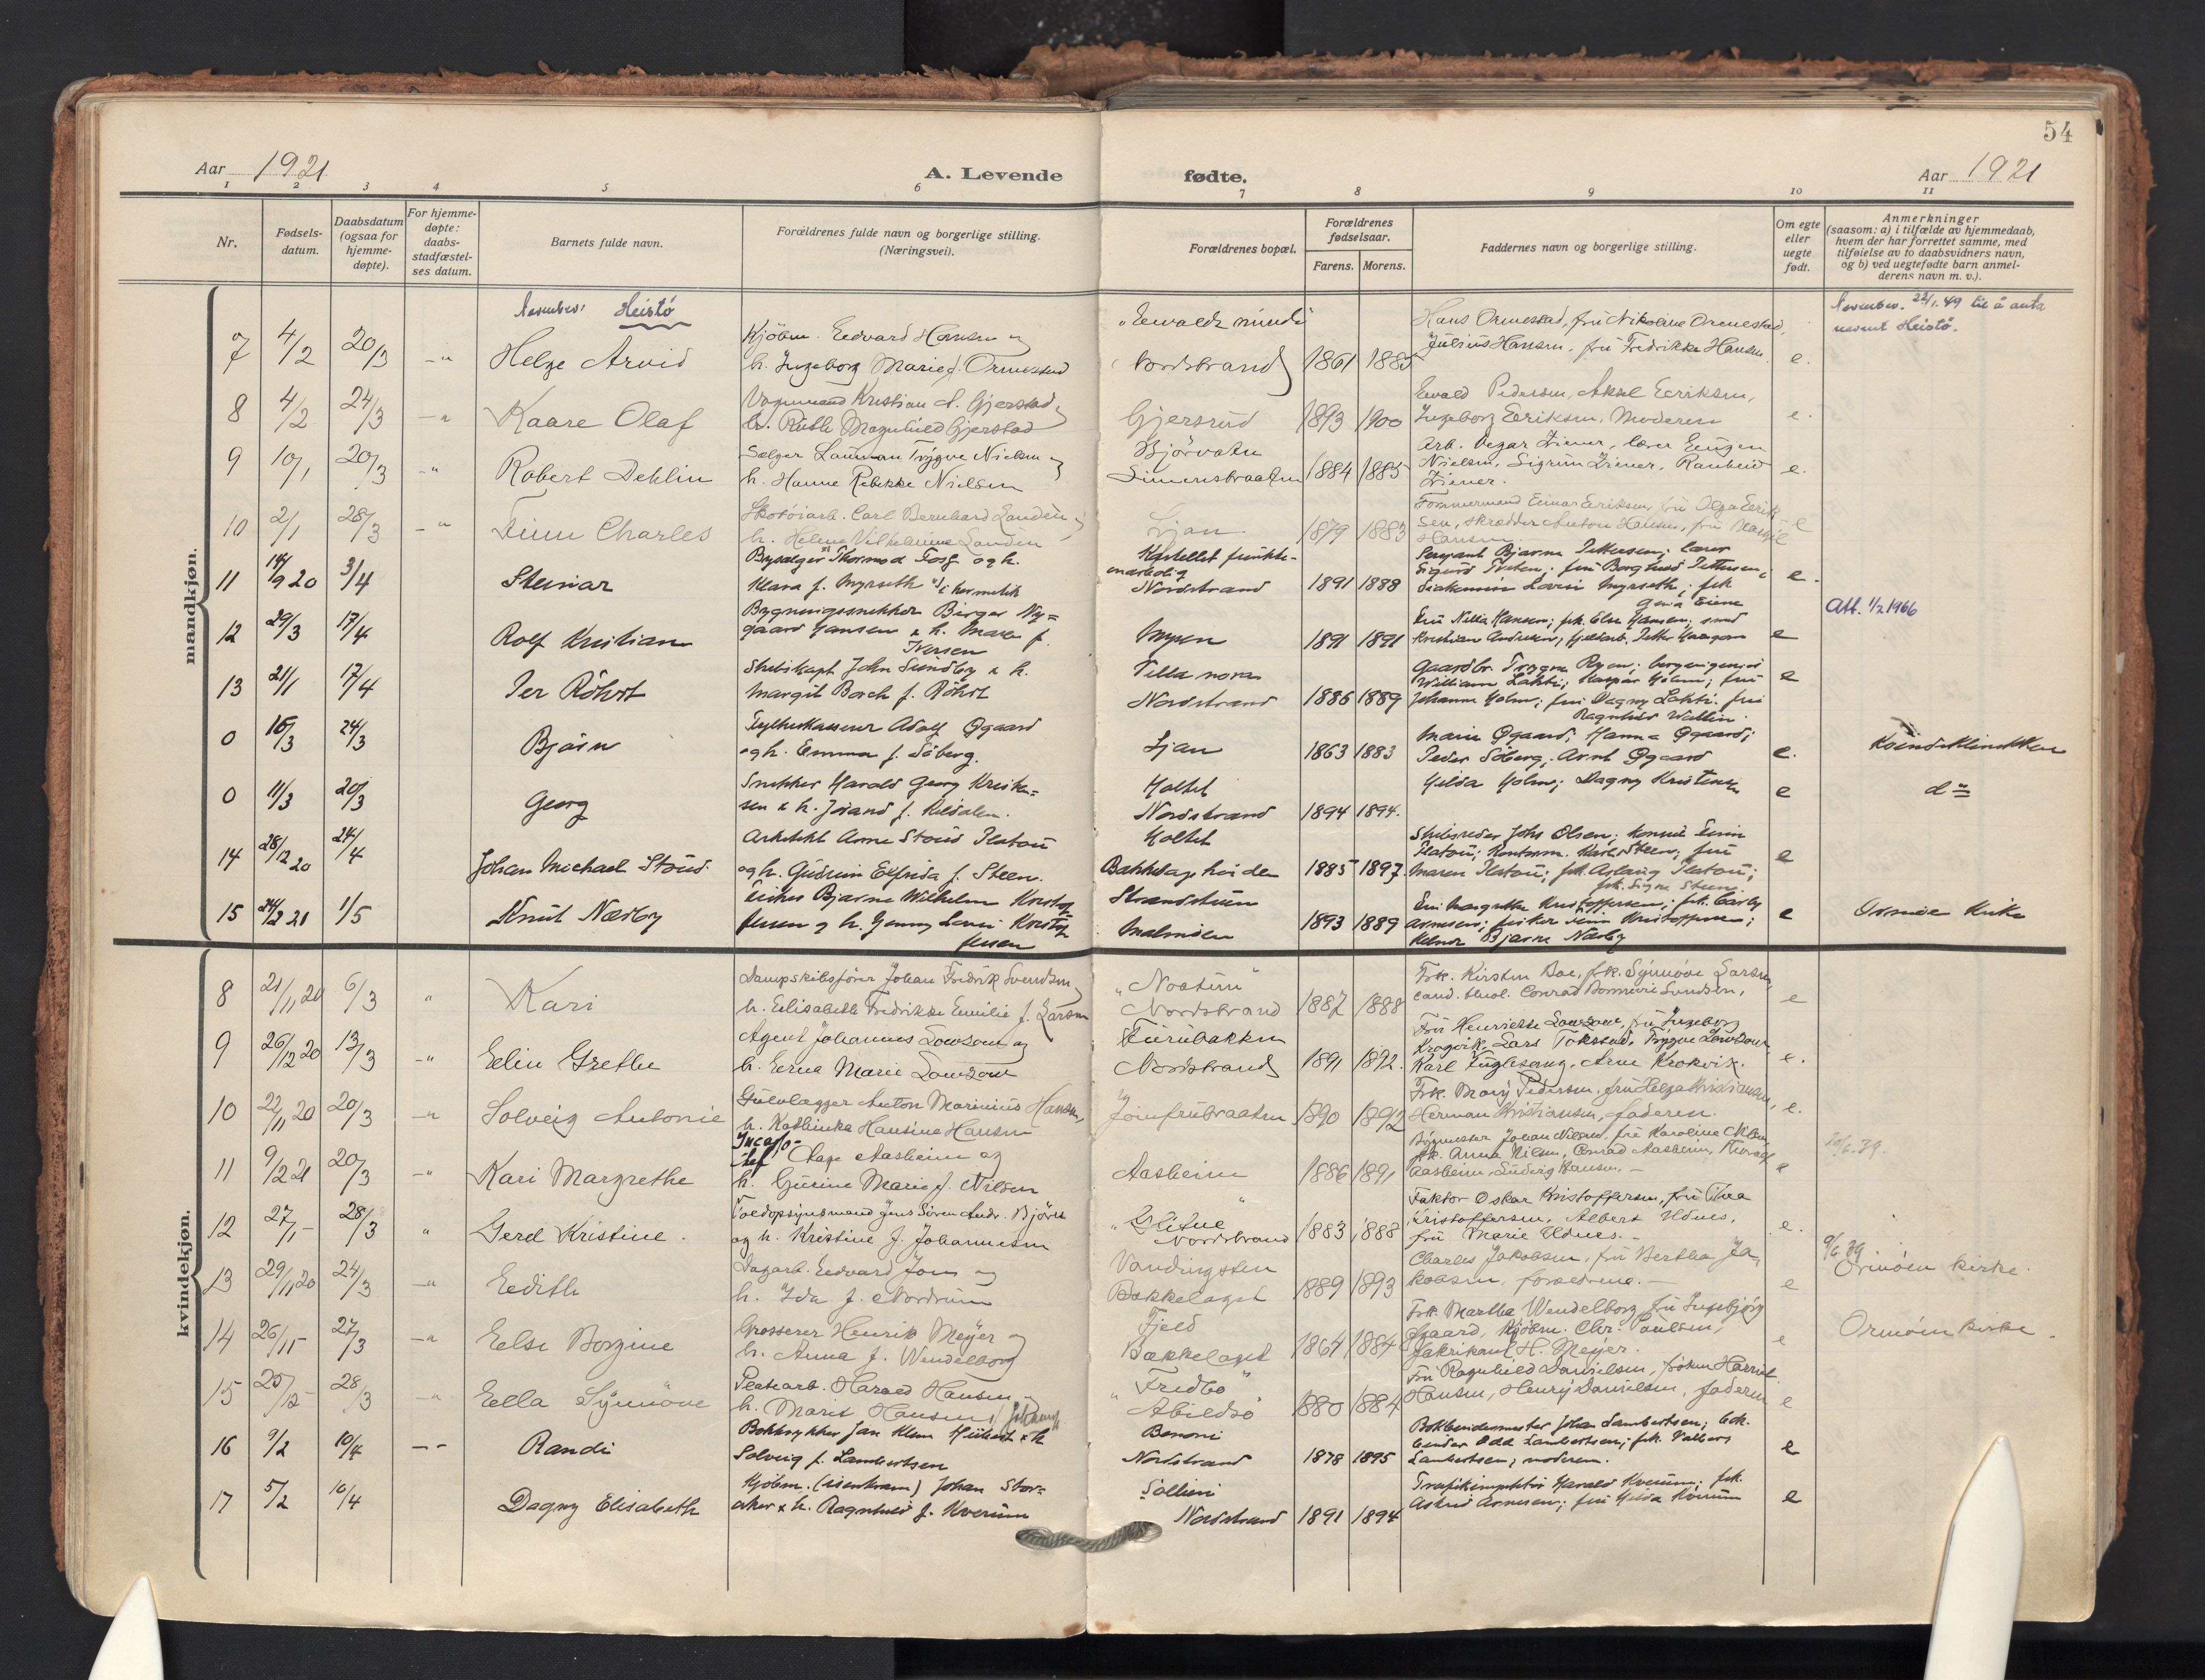 54
Aar 1921
A. Levende fødte.
Aar 1921
1 2 3 4 5 6 7 8 9 10 11
Nr.
Fødsels-
datum.
Daabsdatum
(ogsaa for
hjemme-
døpte).
For hjemme-
døpte:
daabs-
stadfæstel-
ses datum.
Barnets fulde navn.
Forældrenes fulde navn og borgerlige stilling.
(Næringsvei).
Forældrenes bopæl.
Forældrenes
fødselsaar.
Farens. Morens.
Faddernes navn og borgerlige stilling.
Om egte
eller
uegte
født.
Anmerkninger
(saasom: a) i tilfælde av hjemmedaab,
hvem der har forrettet samme, med
tilføielse av to daabsvidners navn,
og b) ved uegtefødte barn anmel-
derens navn m. v.).
mandkjøn.
Heistö
Hans Ormestad, fru Nikoline Ormestad,
22/1.49 til å anta
navnet Heistö.
Kjöbm. Edvard Hansen og
7 4/2 20/3 -"- Helge Arvid
h. Ingeborg Marie f. Ormestad
Nordstrand 1861 1885
Julius Hansen, fru Fredrikke Hansen. e.
8 4/2 24/3 -"- Kaare Olaf
Vognmand Kristian A. Gjerstad
h. Ruth Magnhild Gjerstad
Gjersrud 1893 1900
Ewald Pedersen, Aksel Eriksen,
Ingeborg Eriksen, Moderen e.
9 10/1 20/3 -"- Robert Dehlin
Sælger Trygve Nielsen og
h. Hanne Rebekke Nielsen
Bjørvatn
Simensbraaten 1884 1885
Arb. Vegar Ziener, lærer Eugen
Nielsen, Sigrun Ziener, Ranheid
Ziener. e.
10 2/1 28/3 -"- Finn Charles
Skotøiarb. Carl Bernhard Landén
h. Helene Vilhelmine Landén
Ljan 1879 1883
Formermand Einar Eriksen, fru Olga Erik
sen, skrædder Anton Hansen, fru
Hansen. e
11 14/9 20 3/4 Steinar
Thormod Foss og h.
Klara f. Myrseth
Kastellet
Nordstrand 1891 1888
Sersjant Bjarne Pettersen; lærer
Sigurd Tveten; fru Borghild Pettersen;
Lovise Myrseth; frk. e.
12 29/3 17/4 Rolf Kristian
Bygningssnekker Birger Ny=
gaard Hansen & h. Maren f.
Iversen
Myren 1891 1891
Fru Nilla Hansen; frk. Else Hansen; smed
Kristian Andersen; Petter Haagen e
Att. 1/2 1966
13 21/1 17/4 Per Röhrt
Skibskapt John Sundby & h.
Margit Borch f. Röhrt
Villa nora
Nordstrand 1886 1889
Gaardbr. Trygve Ryen;
William Lakti; Kaspar Holm; fru
Johanne Holm; fru Dagny Lakti. fru
Ragnhild Wallin. e
0 16/3 24/3 Bjørn
Fylkeskasserer Adolf Øgaard
og h. Emma f. Söberg.
Ljan 1863 1883
Marie Øgaard; Hanna Øgaard;
Peder Söberg, Arnt Øgaard e.
Kvindeklinikken
0 11/3 20/3 Georg
Snekker Harald Georg Kristen=
sen & h. Jörand f. Lildalen.
Holtet
Nordstrand 1894 1894.
Hilda Holm; Dagny Kristensen e
do
14 28/12 20 24/4 Johan Michael Stoud.
Arkitekt Arne Stoud Platou
og h. Gudrun Elfrida f. Steen.
Holtet
Bækkelagshøiden 1885 1897.
Skibsreder Johs Olsen;
Platou; Kontorm. Karl Steen; fru
Maren Platou; frk. Aslaug Platou;
frk. Signe Steen. e
15 24/2 21 1/5 Knut Nærby
Fisker Bjarne Wilhelm Kristof
fersen og h. Jenny Lovise Kristof
fersen
Strandstuen
Malmöen 1893 1889
Fru Margrethe Kristoffersen; frk. Borby
Arnesen; fisker Kristoffersen;
Kelner Bjarne Nærby e
Ormöe Kirke
kvindekjøn.
8 21/11 20 6/3 " Kari
Dampskibsfører Johan Fredrik Svendsen
h. Elisabeth Fredrikke Emilie f. Larsen
"Noatun"
Nordstrand 1887 1888
Frk. Kirsten Boe, frk. Synnöve Larsen,
cand. theol. Conrad Svendsen, e
9 26/12 20 13/3 -"- Elin Grethe
Agent Johannes Lowzow og
h. Erna Marie Lowzow
Furubakken
Nordstrand 1891 1892.
Fru Henriette Lowzow, fru Ingeborg
Krogvik, Lars Tokstad, Trygve Lowzow,
Karl Fuglesang, Arne Krokvik. e.
10 22/11 20 20/3 -"- Solveig Antonie
Gulvlægger Anton Marinius Hansen,
h. Kathinka Hansine Hansen
Jomfrubraaten 1890 1892
Frk. Mary Pedersen, fru Helga Kristiansen,
Herman Kristiansen, faderen. e.
11 9/2 21 20/3 -"- Kari Margrethe
Incasso-
chef Aage Aasheim og
h. Gurine Marie f. Nilsen
Aasheim 1886 1891
Johan Nilsen, fru Karoline Nilsen,
frk. Anna Nilsen, Conrad Aasheim,
Aasheim, Ludvig Hansen. - e
20/6.39.
12 27/1 - 28/3 " Gerd Kristine.
Toldopsynsmand Jens Sören Andr. Björn
og h. Kristine f. Johannesen
Nordstrand 1883 1888
Faktor Oskar Kristoffersen, fru Thea
Kristoffersen, Albert Udnes,
fru Marie Udnes. - e.
13 29/11 20 24/3 -"- Edith
Dagarb. Edvard Jons og
h. Ida f. Nordrum
Vandingsten
Bækkelaget 1889 1893
Charles Jakobsen, fru Bertha Ja
kobsen, forældrene. - e
9/6 39
Ormöen kirke.
14 26/11 - 27/3 -"- Else Borgine
Grosserer Henrik Meyer og
h. Anna f. Wendelborg
Fjeld
Bækkelaget 1864 1884
Frk. Martha Wendelborg, fru Ingebjörg
Kjöbm. Chr. Paulsen,
Fabrikant H. Meyer. e
Ormöen kirke.
15 25/12 - 28/3 -"- Ella Synnöve
Platearb. Harald Hansen
h. Marit Hansen
"Fredbo"
Abildsö 1880 1884
Fru Ragnhild Danielsen, fröken Harriet
Hansen, Henry Danielsen, faderen e
16 9/2 10/4 -"- Randi
Boktrykker Jan Klem & h
Solveig f. Lambertsen
Benoni
Nordstrand 1878 1895
Bokbindermester Johan Lambertsen; bok-
binder Odd Lambertsen; frk. Valborg
Lambertsen; moderen. e
17 5/2 10/4 Dagny Elisabeth
Kjöbm. (isenkram) Johan Stor=
aker & h. Ragnhild f. Kverum
Sollien
Nordstrand 1891 1894
Trafikinspektör Harald Kverum; frk.
Astrid Arnesen; fru Hilda Kverum e